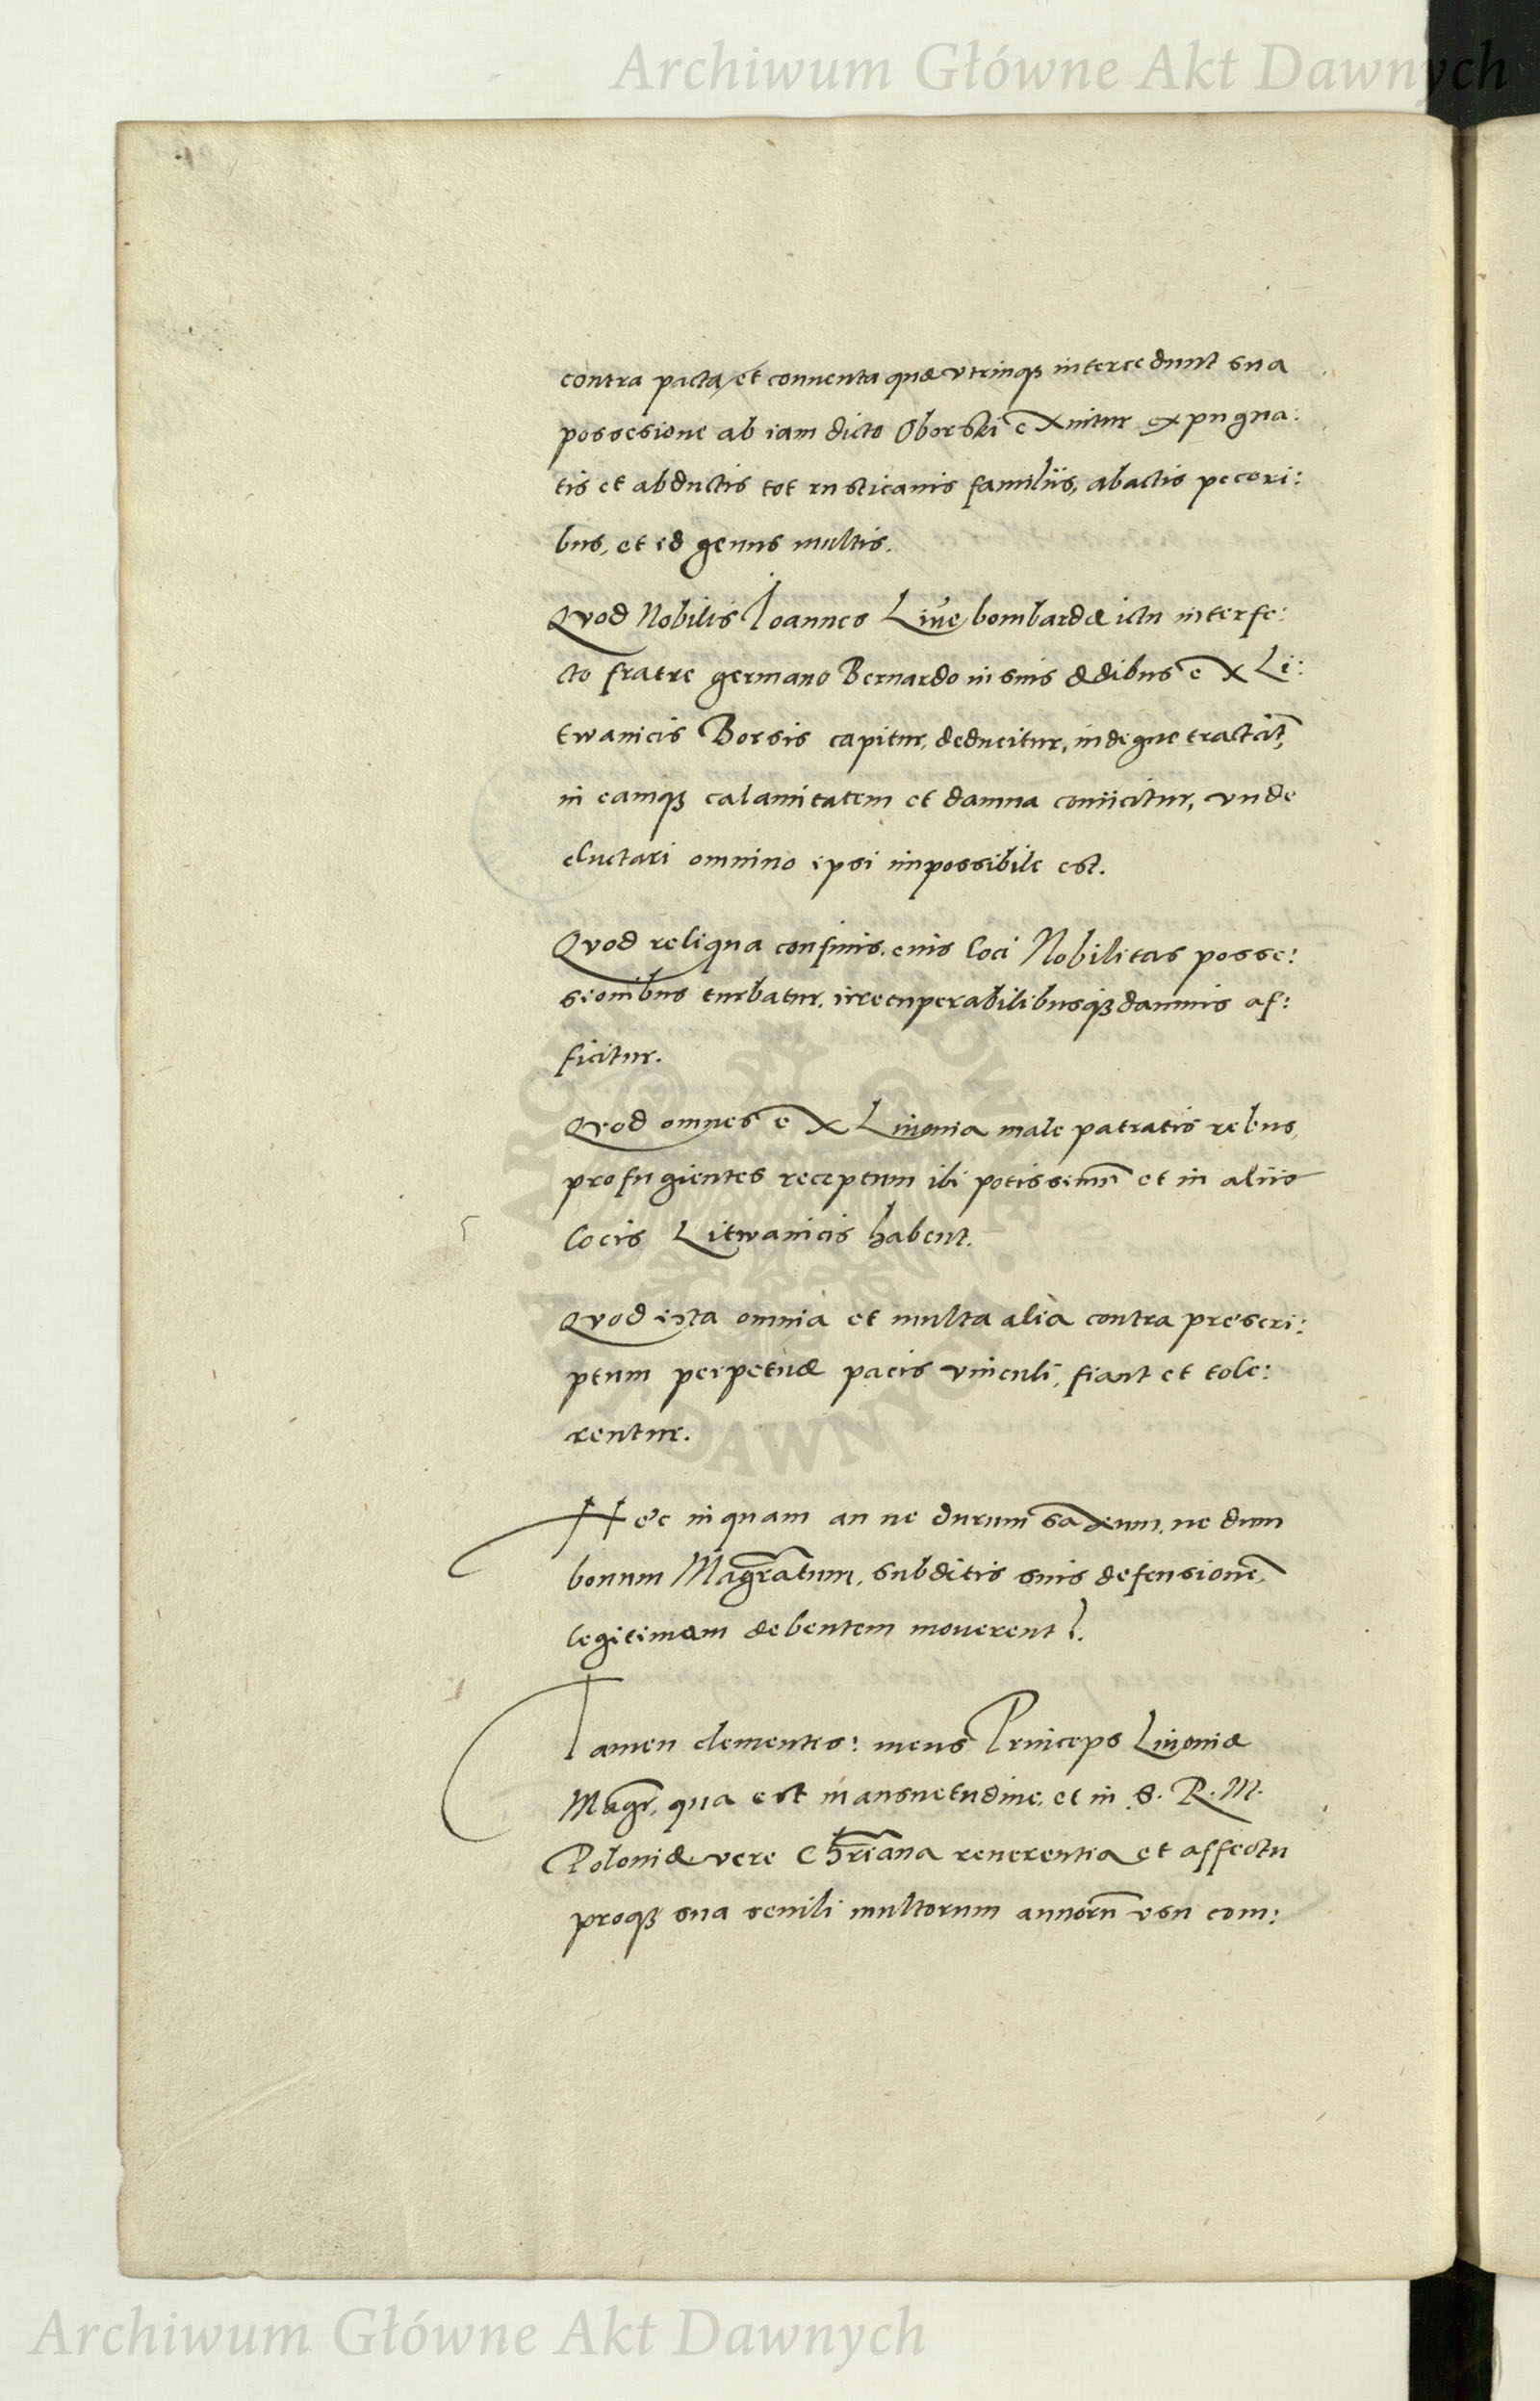 Archiwum Główne Akt Dawnych
contra pacta et conuenta quæ vtrinqꝫ intercedunt sua
possesione ab iam dicto Oborski exuitur expugna:
tis et abductis tot rusticanis familiis, abactis pecori:
bus, et id genus multis.
Quod Nobilis Ioannes Live bombardæ ictu interfe:
cto fratre germano Bernardo in suis ædibus ex Li:
twanicis Borsis capitur, deducitur, indegne tractat̃,
in eamqꝫ calamitatem et damna coniicitur, vnde
eluctari omnino ipsi impossibile est.
Quod reliqua confinis eius loci Nobilitas posse:
sionibus turbatur, irrecuperabilibusqꝫ damnis af:
ficitur.
Quod omnes ex Liuonia male patratis rebus,
profugientes receptum ibi potissimũ et in aliis
locis Litwanicis habent.
Quod ista omnia et multa alia contra prescri:
ptum perpetuæ pacis vinculi, fiant et tole:
rentur.
Hec inquam an ne durum saxeum, ne dum
bonum Magr̃atum, subditis suis defensionẽ,
legitimam debentem mouerent?
Tamen clementis: meus Princeps Liuoniæ
Magr̃, qua est mansuetudine, et in S. R. M.
Poloniæ vere Chr̃iana reuerentia et affectu
proqꝫ sua senili multorum annorũ vsu com:
ARCHIWUM GŁÓWNE AKT DAWNYCH
Archiwum Główne Akt Dawnych